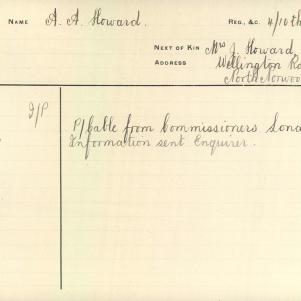 NAME A. A. Howard. REG., &C. 4/10th
NEXT OF KIN Mrs J. Howard
ADDRESS Wellington Ro
North Norwoo
I/P
P/bable from Commissioners Lond
Information sent Enquirer.